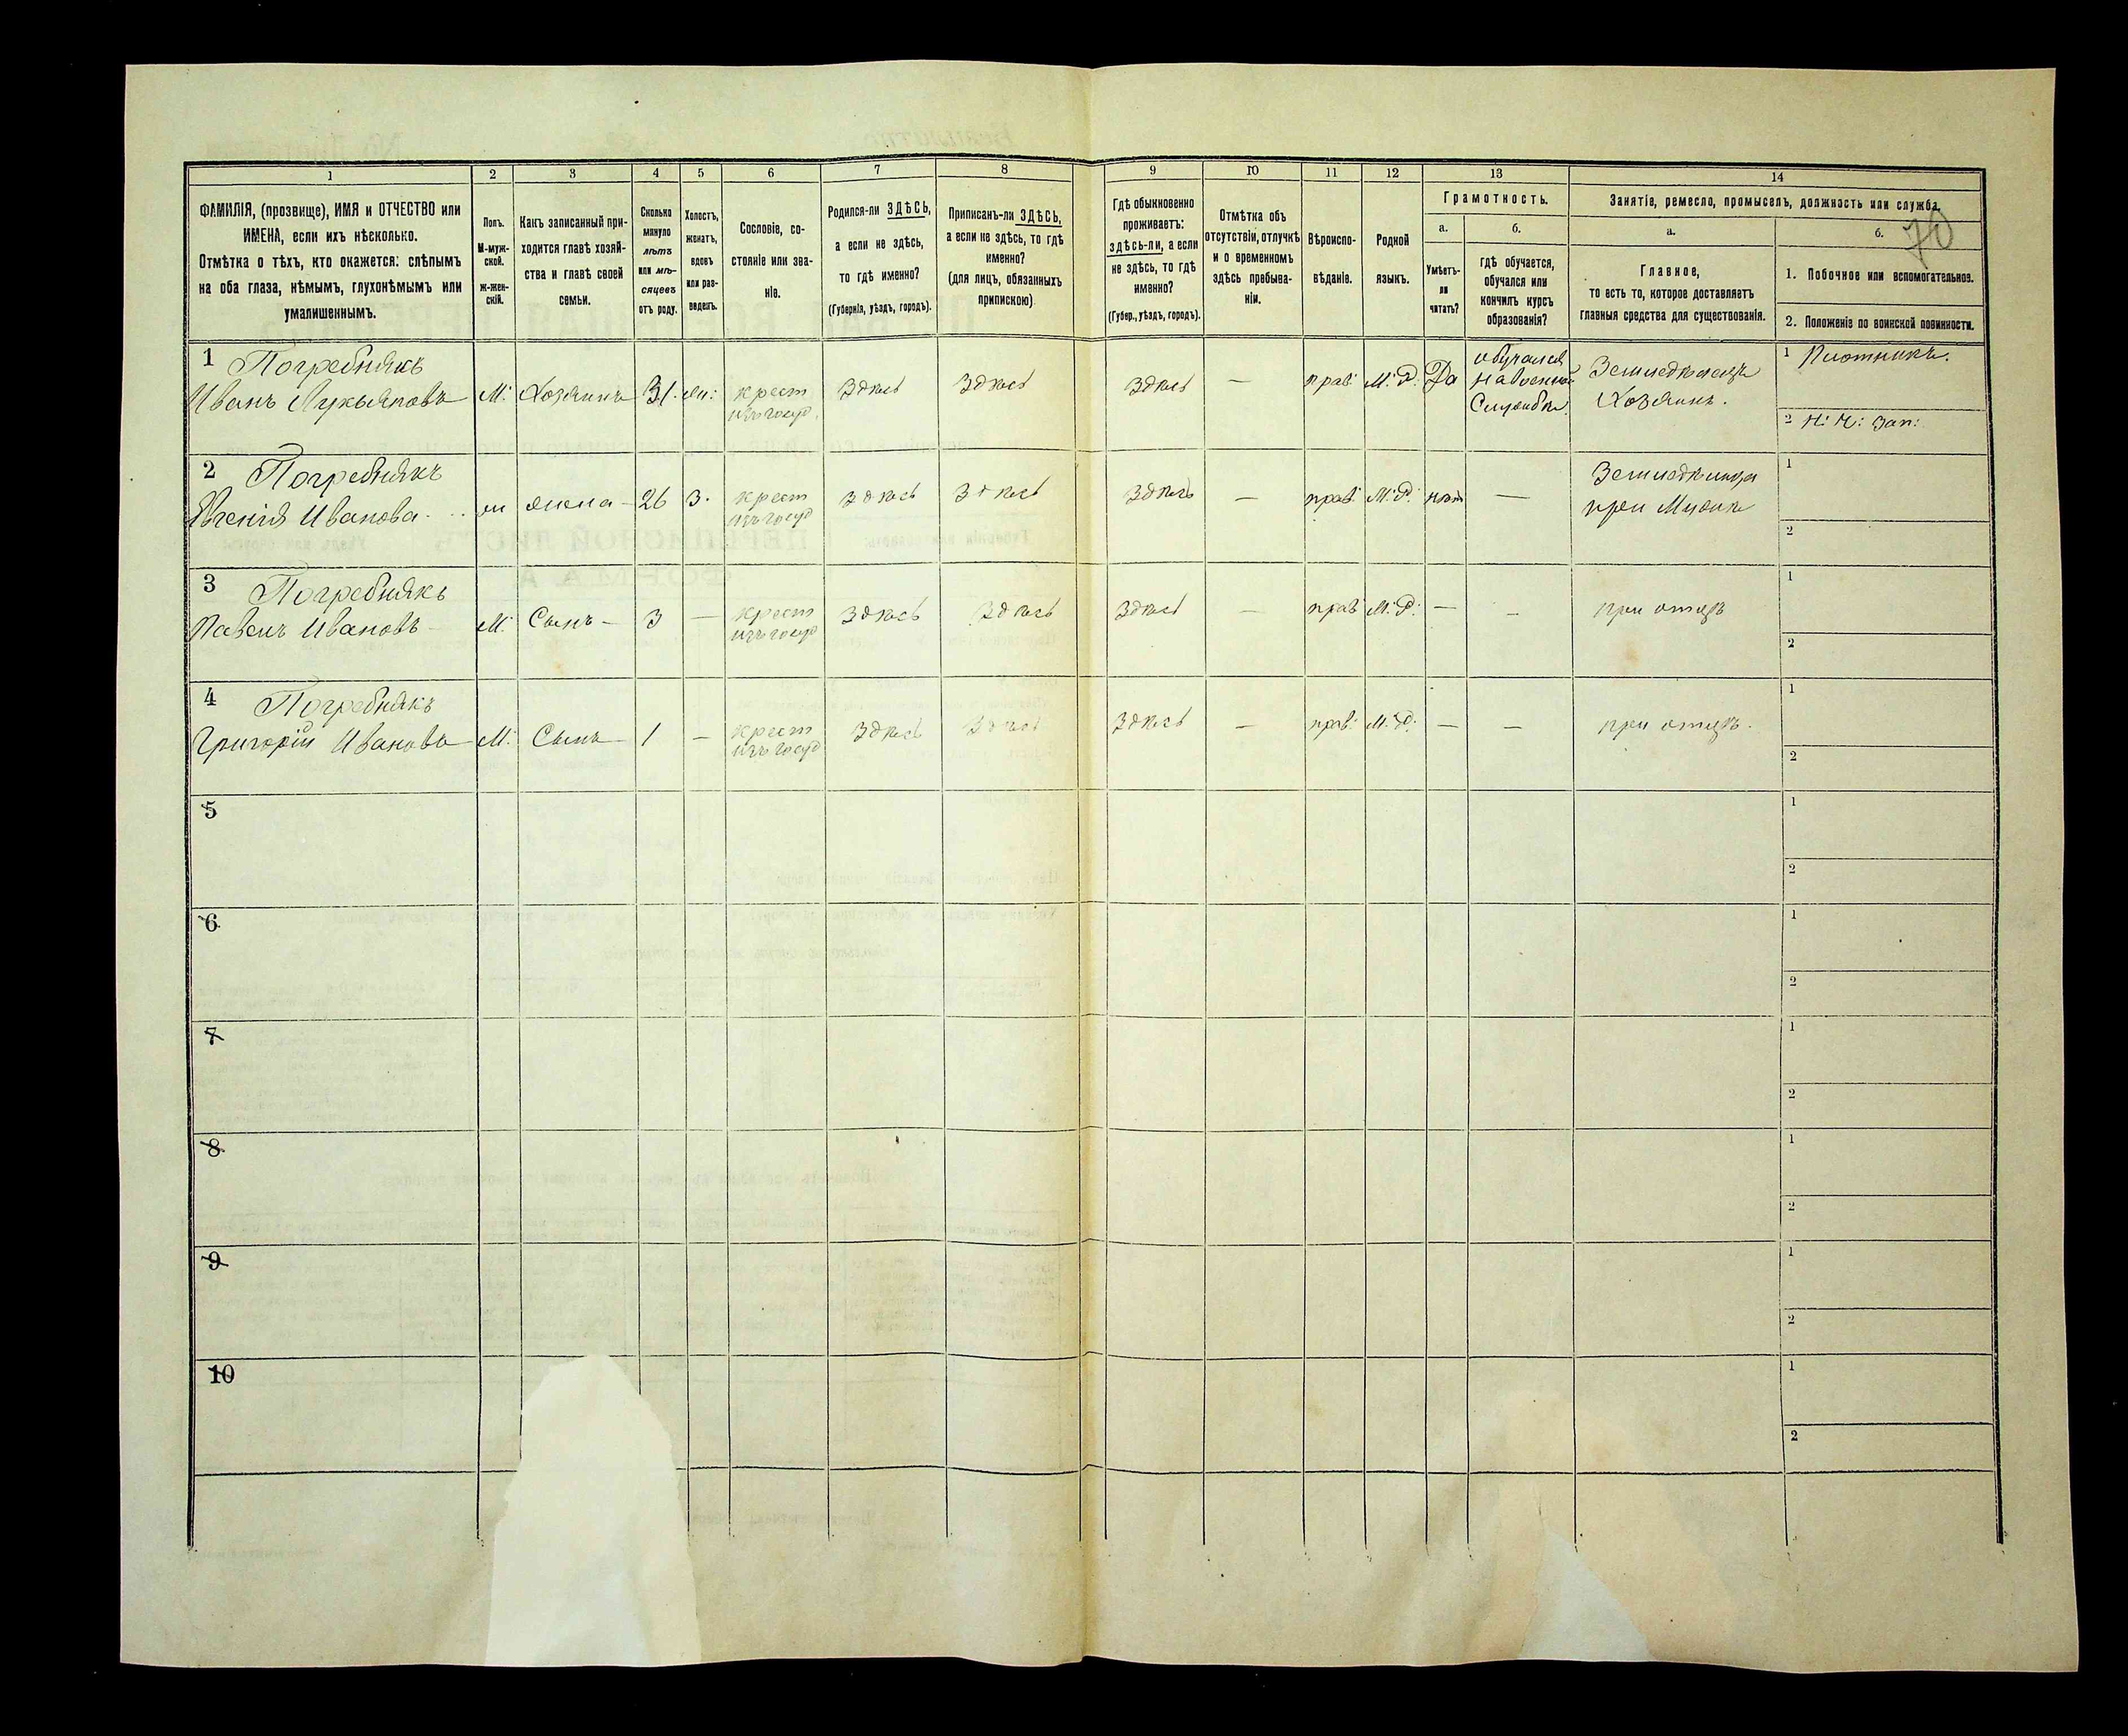 70
1 2 3 4 5 6 7 8 9 10 11 12 13 14
ФАМИЛІЯ, (прозвище), ИМЯ и ОТЧЕСТВО или
ИМЕНА, если ихъ нѣсколько.
Отмѣтка о тѣхъ, кто окажется: слѣпымъ
на оба глаза, нѣмымъ, глухонѣмымъ или
умалишеннымъ.
Полъ.
М-муж-
ской.
ж-жен-
скій.
Какъ записанный при-
ходится главѣ хозяй-
ства и главѣ своей
семьи.
Сколько
минуло
лѣтъ
или мѣ-
сяцевъ
отъ роду.
Холостъ,
женатъ,
вдовъ
или раз-
веденъ.
Сословіе, со-
стояніе или зва-
ніе.
Родился-ли ЗДѢСЬ,
а если не здѣсь,
то гдѣ именно?
(Губернія, уѣздъ, городъ).
Приписанъ-ли ЗДѢСЬ,
а если не здѣсь, то гдѣ
именно?
(для лицъ, обязанныхъ
припискою)
Гдѣ обыкновенно
проживаетъ:
здѣсь-ли, а если
не здѣсь, то гдѣ
именно?
(Губер., уѣздъ, городъ).
Отмѣтка объ
отсутствіи, отлучкѣ
и о временномъ
здѣсь пребыва-
ніи.
Вѣроиспо-
вѣданіе.
Родной
языкъ.
Грамотность.
а.
Умѣетъ-
ли
читать?
б.
гдѣ обучается,
обучался или
кончилъ курсъ
образованія?
Занятіе, ремесло, промыселъ, должность или служба.
а.
Главное,
то есть то, которое доставляетъ
главныя средства для существованія.
б.
1. Побочное или вспомогательное.
2. Положеніе по воинской повинности.
1 Погребнякъ
Иванъ Лукьяновъ М: Хозяинъ 31. жн:
крест
изъ госуд.
Здѣсь Здѣсь Здѣсь — прав: М:Р: Да
обучался
на военной
Службѣ.
Земледѣлецъ
Хозяинъ.
1 Плотникъ.
2 Н: Ч: Зап:
2 Погребнякъ
Евгенія Иванова ж жена 26 З.
крест
изъ госуд
здѣсь здѣсь здѣсь — прав: М:Р: нѣт —
Земледѣлица
при Мужѣ
1
2
3 Погребнякъ
Павелъ Ивановъ М: Сынъ 3 —
крест
изъ госуд
Здѣсь Здѣсь Здѣсь — прав М:Р: — — при отцѣ
1
2
4 Погребнякъ
Григорій Ивановъ М: Сынъ 1 —
крест
изъ госуд
Здѣсь Здѣсь Здѣсь — прав: М:Р: — — при отцѣ.
1
2
5
1
2
6
1
2
7
1
2
8
1
2
9
1
2
10
1
2